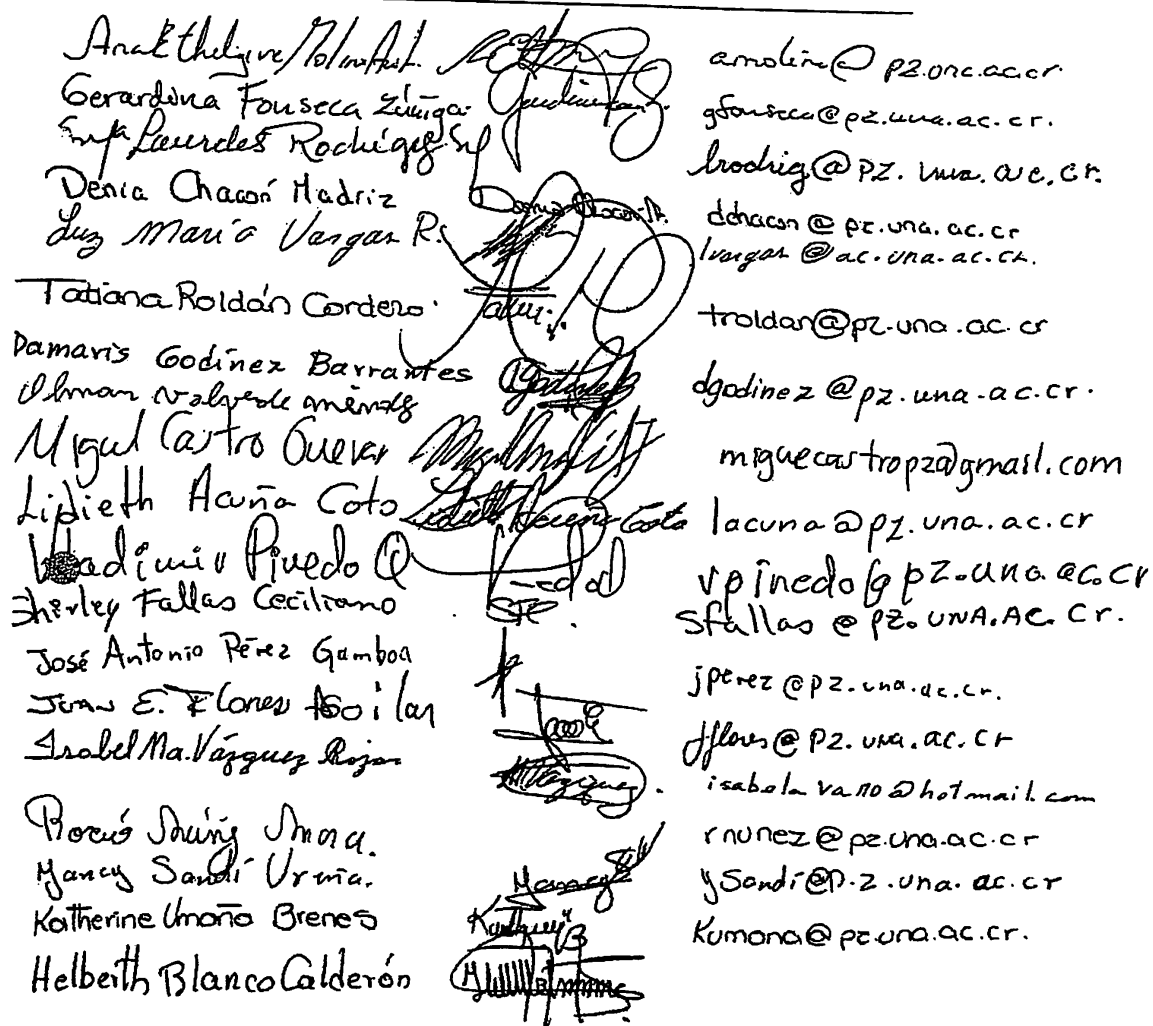 Gerardina Fonseca Zúñiga. gfonseca@pz.una.ac.cr.
Lourdes lrodrig@pz.una.ac.cr.
Denia Chacón Madriz dchacon@pz.una.ac.cr
Luz María Vargas R. lvargas@ac.una.ac.cr.
Tatiana Roldán Cordero. troldan@pz.una.ac.cr
Damaris Godínez Barrantes dgodinez@pz.una.ac.cr.
Miguel Castro miguecastropz@gmail.com
Lidieth Acuña Coto Lidieth Acuña Coto lacuna@pz.una.ac.cr
Vladimir Pinedo Q vpinedo@pz.una.ac.cr
Shirley Fallas Ceciliano sfallas@pz.UNA.AC.Cr.
José Antonio Pérez Gamboa jperez@pz.una.ac.cr.
Juan E. Flores jflores@pz.una.ac.cr
Isabel Ma. Vázquez Rojas isabelavaro@hotmail.com
rnunez@pz.una.ac.cr
Yancy Sandí Ureña. ySandi@p.z.una.ac.cr
Katherine Umaña Brenes Kumana@pz.una.ac.cr.
Helberth Blanco Calderón